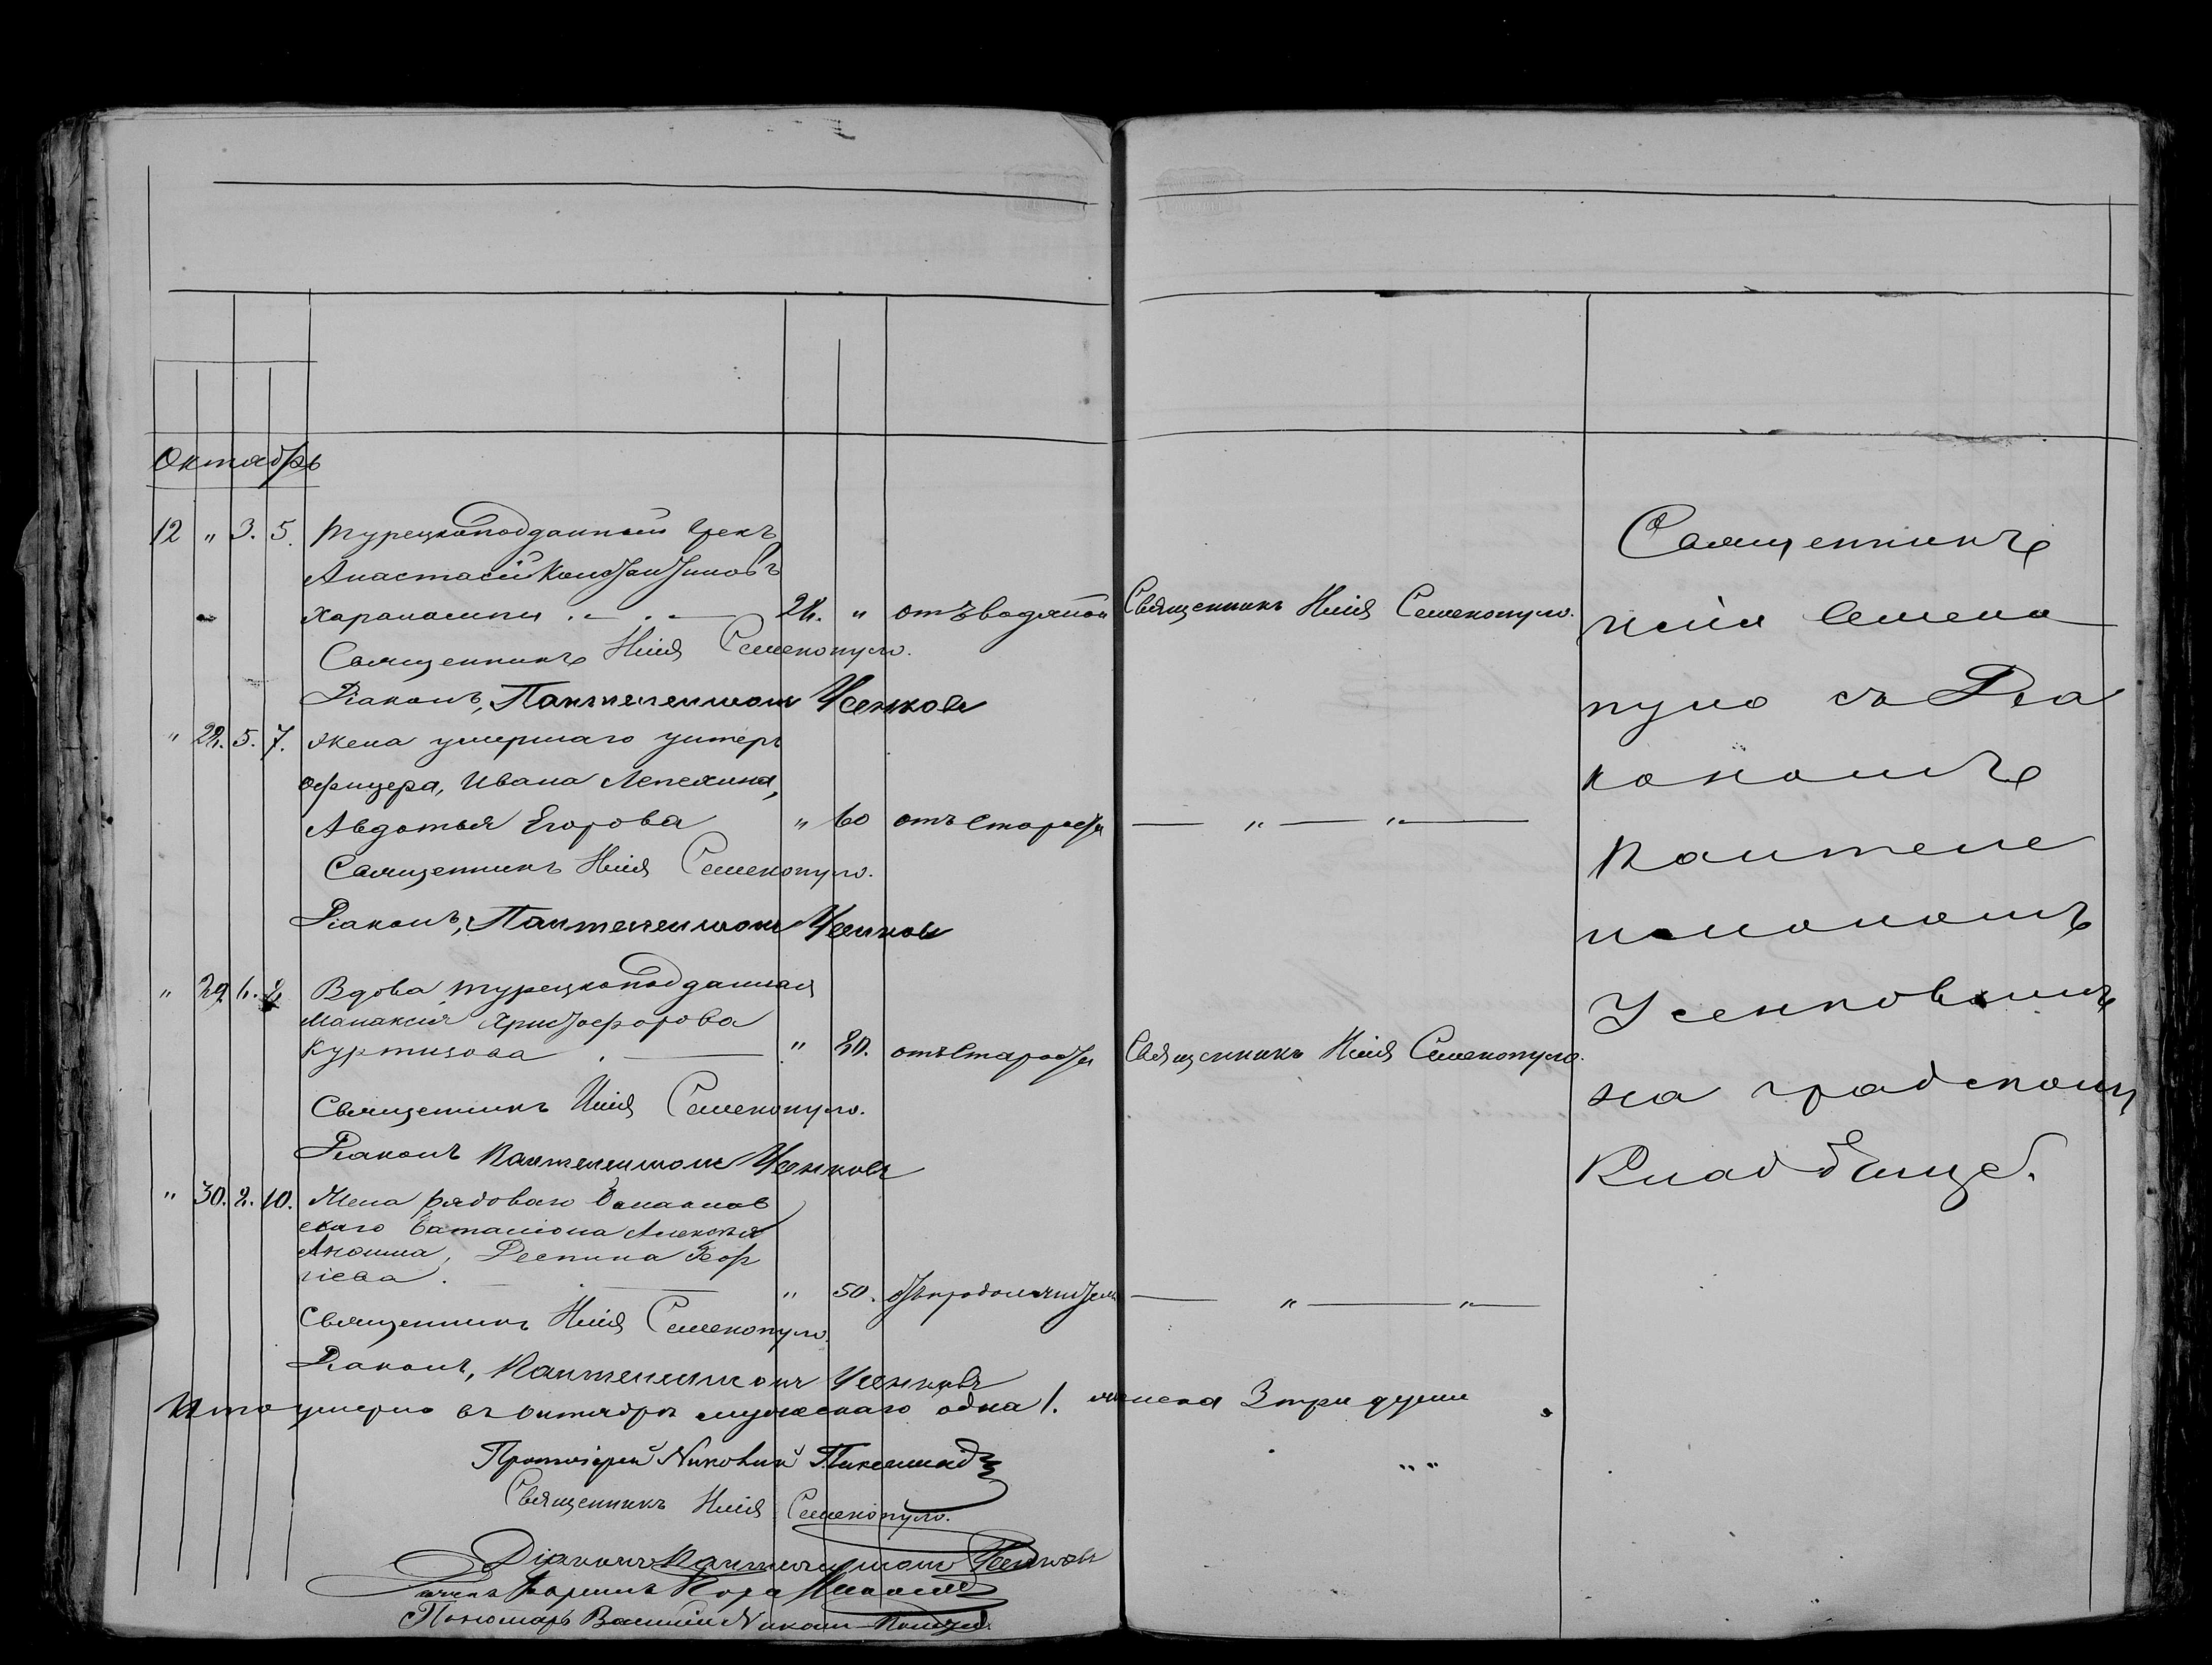 Октябрь
12 " 3. 5. Турецкоподданный Грекъ
Анастасій Константиновъ
Харалампи . — . — 24. " отъ водяной Священникъ Илія Семенопуло.
Священникъ Илія Семенопуло.
Діаконъ, Пантелеимонъ Усенковъ
" 22. 5. 7. Жена умершаго унтеръ
офицера, Ивана Лепехина,
Авдотья Егорова " 60 отъ старости — " — " —
Священникъ Илія Семенопуло.
Діаконъ, Пантелеимонъ Усенковъ
" 29 6. Вдова турецкоподданная
Манаксія Христофорова
" 80. отъ старости Священникъ Илія Семенопуло.
Священникъ Илія Семенопуло.
Діаконъ Пантелеимонъ Усенковъ
" 30. 2. 10. Жена рядоваго Балаклав
скаго баталіона Алексѣя
Деспина Геор
гіева. — " 50. — " — " —
Священникъ Илія Семенопуло.
Діаконъ, Пантелеимонъ Усенковъ
Итого умерло въ Октябрѣ мужескаго одна 1. женска 3 три души
Протоіерей
Священникъ Илія Семенопуло.
Діаконъ Пантелеимонъ Усенковъ
Пономарь Василій
Священникъ
Илія Семено
пуло съ Діа
кономъ
Пантеле
имономъ
Усенковымъ
на градскомъ
Кладбищѣ.